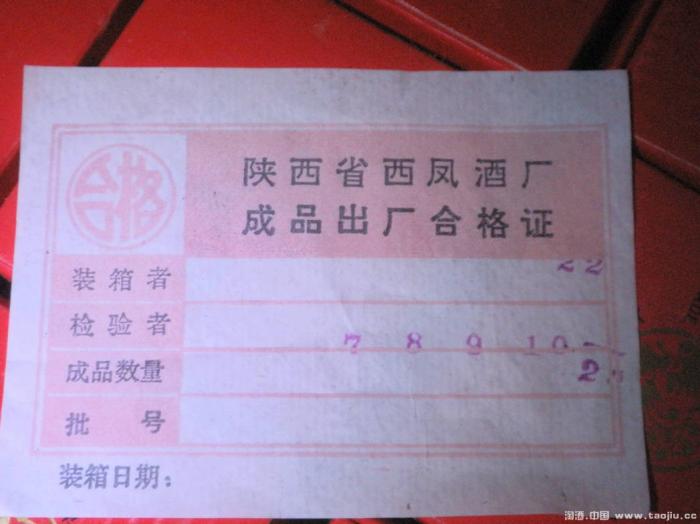 合格
陕西省西凤酒厂
成品出厂合格证
装箱者 22
检验者 7 8 9 10
成品数量 2
批号
装箱日期：
淘酒.中国 www.taojiu.cc